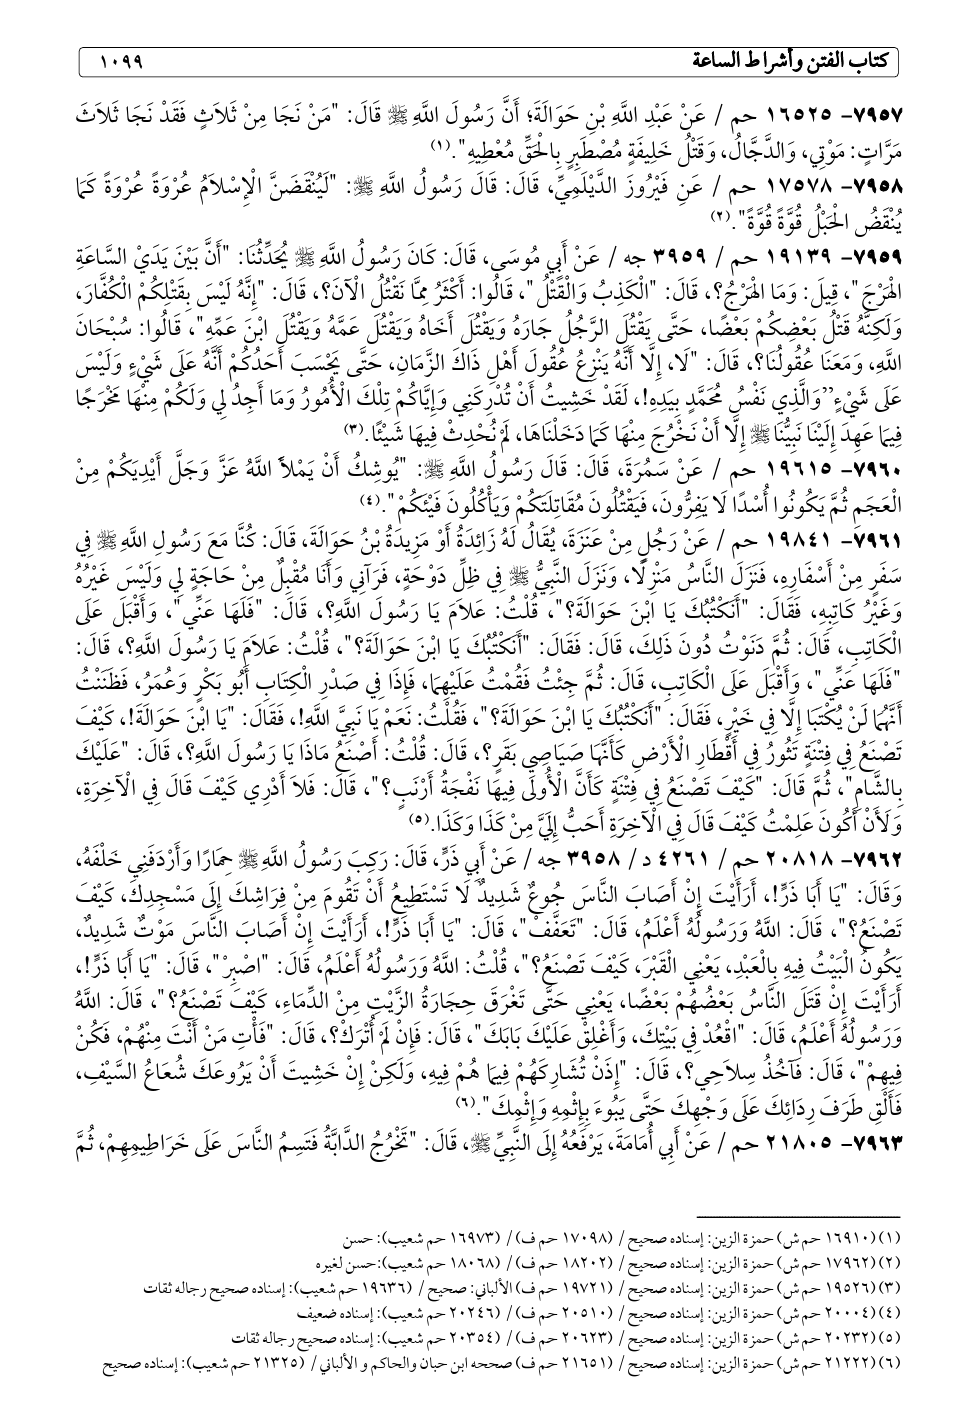 كتاب الفتن وأشراط الساعة ١٠٩٩
٧٩٥٧- ١٦٥٢٥ حم / عَنْ عَبْدِ اللَّهِ بْنِ حَوَالَةَ؛ أَنَّ رَسُولَ اللَّهِ ﷺ قَالَ: "مَنْ نَجَا مِنْ ثَلاَثٍ فَقَدْ نَجَا ثَلاَثَ
مَرَّاتٍ: مَوْتِي، وَالدَّجَّالُ، وَقَتْلُ خَلِيفَةٍ مُصْطَبِرٍ بِالْحَقِّ مُعْطِيهِ".(١)
٧٩٥٨- ١٧٥٧٨ حم / عَنِ فَيْرُوزَ الدَّيْلَمِيِّ، قَالَ: قَالَ رَسُولُ اللَّهِ ﷺ: "لَيُنْقَضَنَّ الْإِسْلاَمُ عُرْوَةً عُرْوَةً كَمَا
يُنْقَضُ الْحَبْلُ قُوَّةً قُوَّةً".(٢)
٧٩٥٩- ١٩١٣٩ حم / ٣٩٥٩ جه / عَنْ أَبِي مُوسَى، قَالَ: كَانَ رَسُولُ اللَّهِ ﷺ يُحَدِّثُنَا: "أَنَّ بَيْنَ يَدَيْ السَّاعَةِ
الْهَرْجَ"، قِيلَ: وَمَا الْهَرْجُ؟، قَالَ: "الْكَذِبُ وَالْقَتْلُ"، قَالُوا: أَكْثَرُ مِمَّا نَقْتُلُ الْآنَ؟، قَالَ: "إِنَّهُ لَيْسَ بِقَتْلِكُمْ الْكُفَّارَ،
وَلَكِنَّهُ قَتْلُ بَعْضِكُمْ بَعْضًا، حَتَّى يَقْتُلَ الرَّجُلُ جَارَهُ وَيَقْتُلَ أَخَاهُ وَيَقْتُلَ عَمَّهُ وَيَقْتُلَ ابْنَ عَمِّهِ"، قَالُوا: سُبْحَانَ
اللَّهِ، وَمَعَنَا عُقُولُنَا؟، قَالَ: "لَا، إِلَّا أَنَّهُ يَنْزِعُ عُقُولَ أَهْلِ ذَاكَ الزَّمَانِ، حَتَّى يَحْسَبَ أَحَدُكُمْ أَنَّهُ عَلَى شَيْءٍ وَلَيْسَ
عَلَى شَيْءٍ" وَالَّذِي نَفْسُ مُحَمَّدٍ بِيَدِهِ!، لَقَدْ خَشِيتُ أَنْ تُدْرِكَنِي وَإِيَّاكُمْ تِلْكَ الْأُمُورُ وَمَا أَجِدُ لِي وَلَكُمْ مِنْهَا مَخْرَجًا
فِيمَا عَهِدَ إِلَيْنَا نَبِيُّنَا ﷺ إِلَّا أَنْ نَخْرُجَ مِنْهَا كَمَا دَخَلْنَاهَا، لَمْ نُحْدِثْ فِيهَا شَيْئًا.(٣)
٧٩٦٠- ١٩٦١٥ حم / عَنْ سَمُرَةَ، قَالَ: قَالَ رَسُولُ اللَّهِ ﷺ: "يُوشِكُ أَنْ يَمْلَأَ اللَّهُ عَزَّ وَجَلَّ أَيْدِيَكُمْ مِنْ
الْعَجَمِ ثُمَّ يَكُونُوا أُسْدًا لَا يَفِرُّونَ، فَيَقْتُلُونَ مُقَاتِلَتَكُمْ وَيَأْكُلُونَ فَيْئَكُمْ".(٤)
٧٩٦١- ١٩٨٤١ حم / عَنْ رَجُلٍ مِنْ عَنَزَةَ، يُقَالُ لَهُ زَائِدَةُ أَوْ مَزِيدَةُ بْنُ حَوَالَةَ، قَالَ: كُنَّا مَعَ رَسُولِ اللَّهِ ﷺ فِي
سَفَرٍ مِنْ أَسْفَارِهِ، فَنَزَلَ النَّاسُ مَنْزِلًا، وَنَزَلَ النَّبِيُّ ﷺ فِي ظِلِّ دَوْحَةٍ، فَرَآنِي وَأَنَا مُقْبِلٌ مِنْ حَاجَةٍ لِي وَلَيْسَ غَيْرُهُ
وَغَيْرُ كَاتِبِهِ، فَقَالَ: "أَنَكْتُبُكَ يَا ابْنَ حَوَالَةَ؟"، قُلْتُ: عَلاَمَ يَا رَسُولَ اللَّهِ؟، قَالَ: "فَلَهَا عَنِّي"، وَأَقْبَلَ عَلَى
الْكَاتِبِ، قَالَ: ثُمَّ دَنَوْتُ دُونَ ذَلِكَ، قَالَ: فَقَالَ: "أَنَكْتُبُكَ يَا ابْنَ حَوَالَةَ؟"، قُلْتُ: عَلاَمَ يَا رَسُولَ اللَّهِ؟، قَالَ:
"فَلَهَا عَنِّي"، وَأَقْبَلَ عَلَى الْكَاتِبِ، قَالَ: ثُمَّ جِئْتُ فَقُمْتُ عَلَيْهِمَا، فَإِذَا فِي صَدْرِ الْكِتَابِ أَبُو بَكْرٍ وَعُمَرُ، فَظَنَنْتُ
أَنَّهُمَا لَنْ يُكْتَبَا إِلَّا فِي خَيْرٍ، فَقَالَ: "أَنَكْتُبُكَ يَا ابْنَ حَوَالَةَ؟"، فَقُلْتُ: نَعَمْ يَا نَبِيَّ اللَّهِ!، فَقَالَ: "يَا ابْنَ حَوَالَةَ!، كَيْفَ
تَصْنَعُ فِي فِتْنَةٍ تَثُورُ فِي أَقْطَارِ الْأَرْضِ كَأَنَّهَا صَيَاصِي بَقَرٍ؟، قَالَ: قُلْتُ: أَصْنَعُ مَاذَا يَا رَسُولَ اللَّهِ؟، قَالَ: "عَلَيْكَ
بِالشَّامِ"، ثُمَّ قَالَ: "كَيْفَ تَصْنَعُ فِي فِتْنَةٍ كَأَنَّ الْأُولَى فِيهَا نَفْجَةُ أَرْنَبٍ؟"، قَالَ: فَلاَ أَدْرِي كَيْفَ قَالَ فِي الْآخِرَةِ،
وَلَأَنْ أَكُونَ عَلِمْتُ كَيْفَ قَالَ فِي الْآخِرَةِ أَحَبُّ إِلَيَّ مِنْ كَذَا وَكَذَا.(٥)
٧٩٦٢- ٢٠٨١٨ حم / ٤٢٦١ د / ٣٩٥٨ جه / عَنْ أَبِي ذَرٍّ، قَالَ: رَكِبَ رَسُولُ اللَّهِ ﷺ حِمَارًا وَأَرْدَفَنِي خَلْفَهُ،
وَقَالَ: "يَا أَبَا ذَرٍّ!، أَرَأَيْتَ إِنْ أَصَابَ النَّاسَ جُوعٌ شَدِيدٌ لَا تَسْتَطِيعُ أَنْ تَقُومَ مِنْ فِرَاشِكَ إِلَى مَسْجِدِكَ، كَيْفَ
تَصْنَعُ؟"، قَالَ: اللَّهُ وَرَسُولُهُ أَعْلَمُ، قَالَ: "تَعَفَّفْ"، قَالَ: "يَا أَبَا ذَرٍّ!، أَرَأَيْتَ إِنْ أَصَابَ النَّاسَ مَوْتٌ شَدِيدٌ،
يَكُونُ الْبَيْتُ فِيهِ بِالْعَبْدِ، يَعْنِي الْقَبْرَ، كَيْفَ تَصْنَعُ؟"، قُلْتُ: اللَّهُ وَرَسُولُهُ أَعْلَمُ، قَالَ: "اصْبِرْ"، قَالَ: "يَا أَبَا ذَرٍّ!،
أَرَأَيْتَ إِنْ قَتَلَ النَّاسُ بَعْضُهُمْ بَعْضًا، يَعْنِي حَتَّى تَغْرَقَ حِجَارَةُ الزَّيْتِ مِنْ الدِّمَاءِ، كَيْفَ تَصْنَعُ؟"، قَالَ: اللَّهُ
وَرَسُولُهُ أَعْلَمُ، قَالَ: "اقْعُدْ فِي بَيْتِكَ، وَأَغْلِقْ عَلَيْكَ بَابَكَ"، قَالَ: فَإِنْ لَمْ أُتْرَكْ؟، قَالَ: "فَأْتِ مَنْ أَنْتَ مِنْهُمْ، فَكُنْ
فِيهِمْ"، قَالَ: فَآخُذُ سِلاَحِي؟، قَالَ: "إِذَنْ تُشَارِكَهُمْ فِيمَا هُمْ فِيهِ، وَلَكِنْ إِنْ خَشِيتَ أَنْ يَرُوعَكَ شُعَاعُ السَّيْفِ،
فَأَلْقِ طَرَفَ رِدَائِكَ عَلَى وَجْهِكَ حَتَّى يَبُوءَ بِإِثْمِهِ وَإِثْمِكَ".(٦)
٧٩٦٣- ٢١٨٠٥ حم / عَنْ أَبِي أُمَامَةَ، يَرْفَعُهُ إِلَى النَّبِيِّ ﷺ، قَالَ: "تَخْرُجُ الدَّابَّةُ فَتَسِمُ النَّاسَ عَلَى خَرَاطِيمِهِمْ، ثُمَّ
(١) (١٦٩١٠ حم ش) حمزة الزين: إسناده صحيح / (١٧٠٩٨ حم ف) / (١٦٩٧٣ حم شعيب): حسن
(٢) (١٧٩٦٢ حم ش) حمزة الزين: إسناده صحيح / (١٨٢٠٢ حم ف) / (١٨٠٦٨ حم شعيب):حسن لغيره
(٣) (١٩٥٢٦ حم ش) حمزة الزين: إسناده صحيح / (١٩٧٢١ حم ف) الألباني: صحيح / (١٩٦٣٦ حم شعيب): إسناده صحيح رجاله ثقات
(٤) (٢٠٠٠٤ حم ش) حمزة الزين: إسناده صحيح / (٢٠٥١٠ حم ف) / (٢٠٢٤٦ حم شعيب): إسناده ضعيف
(٥) (٢٠٢٣٢ حم ش) حمزة الزين: إسناده صحيح / (٢٠٦٢٣ حم ف) / (٢٠٣٥٤ حم شعيب): إسناده صحيح رجاله ثقات
(٦) (٢١٢٢٢ حم ش) حمزة الزين: إسناده صحيح / (٢١٦٥١ حم ف) صححه ابن حبان والحاكم و الألباني / (٢١٣٢٥ حم شعيب): إسناده صحيح